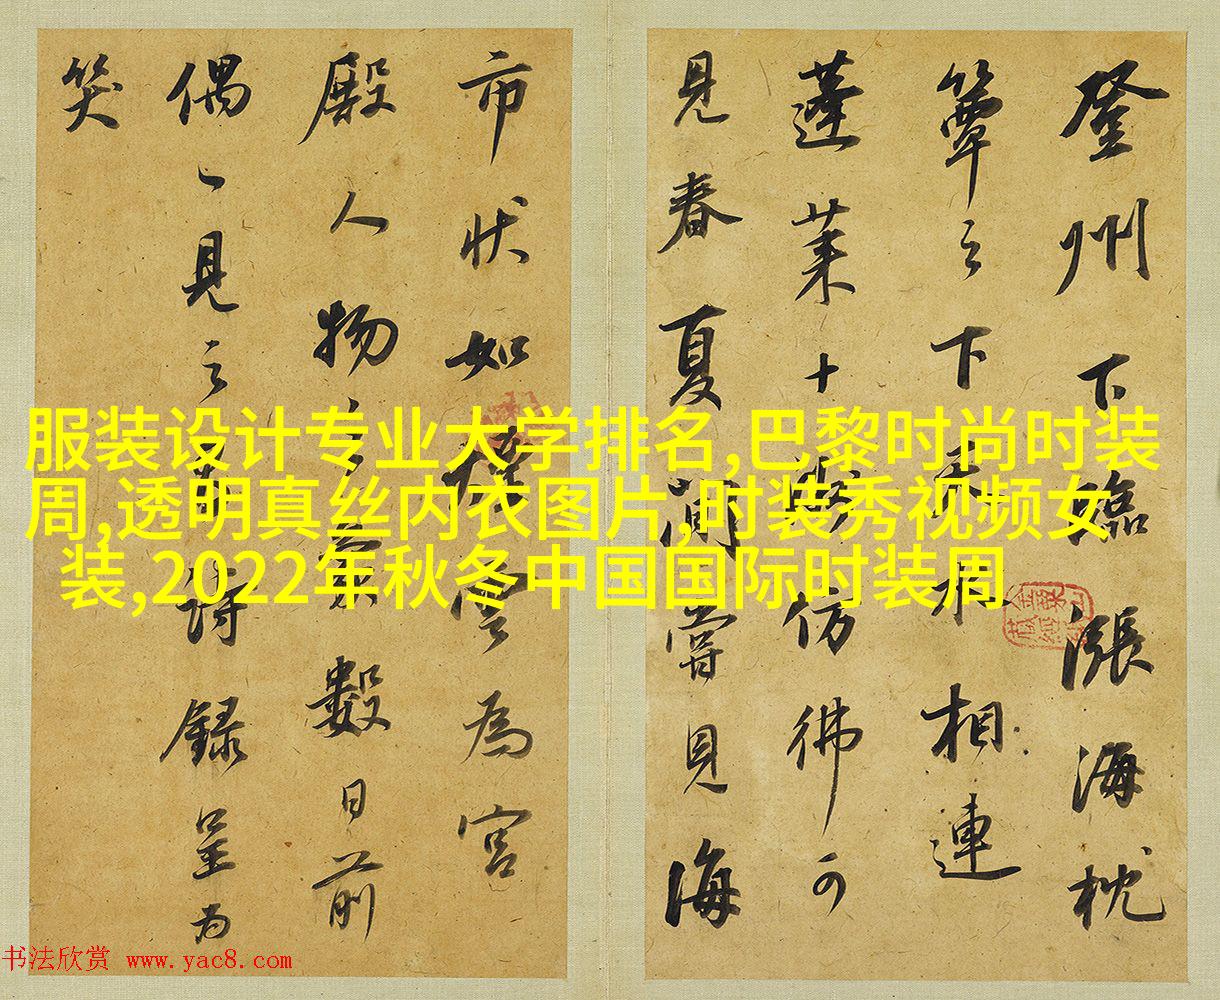 登州下臨漲海枕
簟之下天水相連
蓬莱十仿彿可
見春夏間嘗見海
市狀如雲為宮
殿人物之象數日前
偶一見之有詩録呈為
笑
服装设计专业大学排名,巴黎时尚时装
周,透明真丝内衣图片,时装秀视频女
装,2022年秋冬中国国际时装周
书法欣赏 www.yac8.com